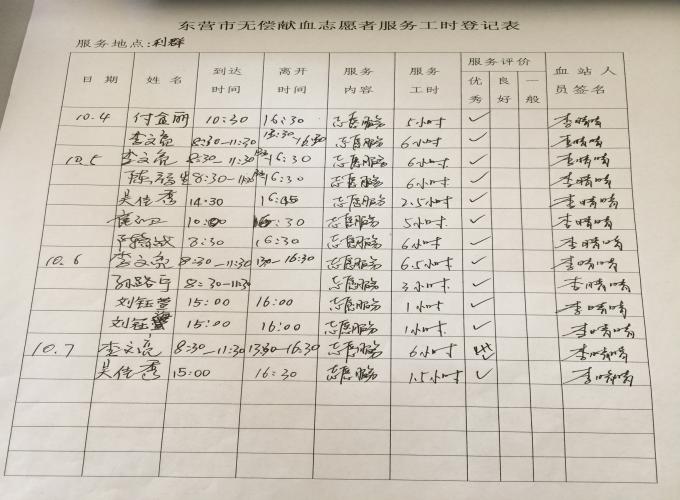 东营市无偿献血志愿者服务工时登记表
服务地点:利群
日期 姓名 到达时间 离开时间 服务内容 服务工时 服务评价 优秀 良好 一般 血站人员签名
10.4 付金丽 10:30 16:30 志愿服务 5小时 ✓ 李晴晴
李文亮 8:30-11:30 13:30-16:30 志愿服务 6小时 ✓ 李晴晴
10.5 李文亮 8:30-11:30 16:30 志愿服务 6小时 ✓ 李晴晴
8:30-11:30 16:30 志愿服务 6小时 ✓ 李晴晴
吴佳秀 14:30 16:45 志愿服务 2.5小时 ✓ 李晴晴
10:00 16:30 志愿服务 5小时 ✓ 李晴晴
8:30 16:30 志愿服务 6小时 ✓ 李晴晴
10.6 李文亮 8:30-11:30 1330-16:30 志愿服务 6.5小时 ✓ 李晴晴
孙路宁 8:30-11:30 志愿服务 3小时 ✓ 李晴晴
刘钰莹 15:00 16:00 志愿服务 1小时 ✓ 李晴晴
刘钰 15:00 16:00 志愿服务 1小时 ✓ 李晴晴
10.7 李文亮 8:30-11:30 13:30-16:30 志愿服务 6小时 李晴晴
吴佳秀 15:00 16:30 志愿服务 1.5小时 ✓ 李晴晴